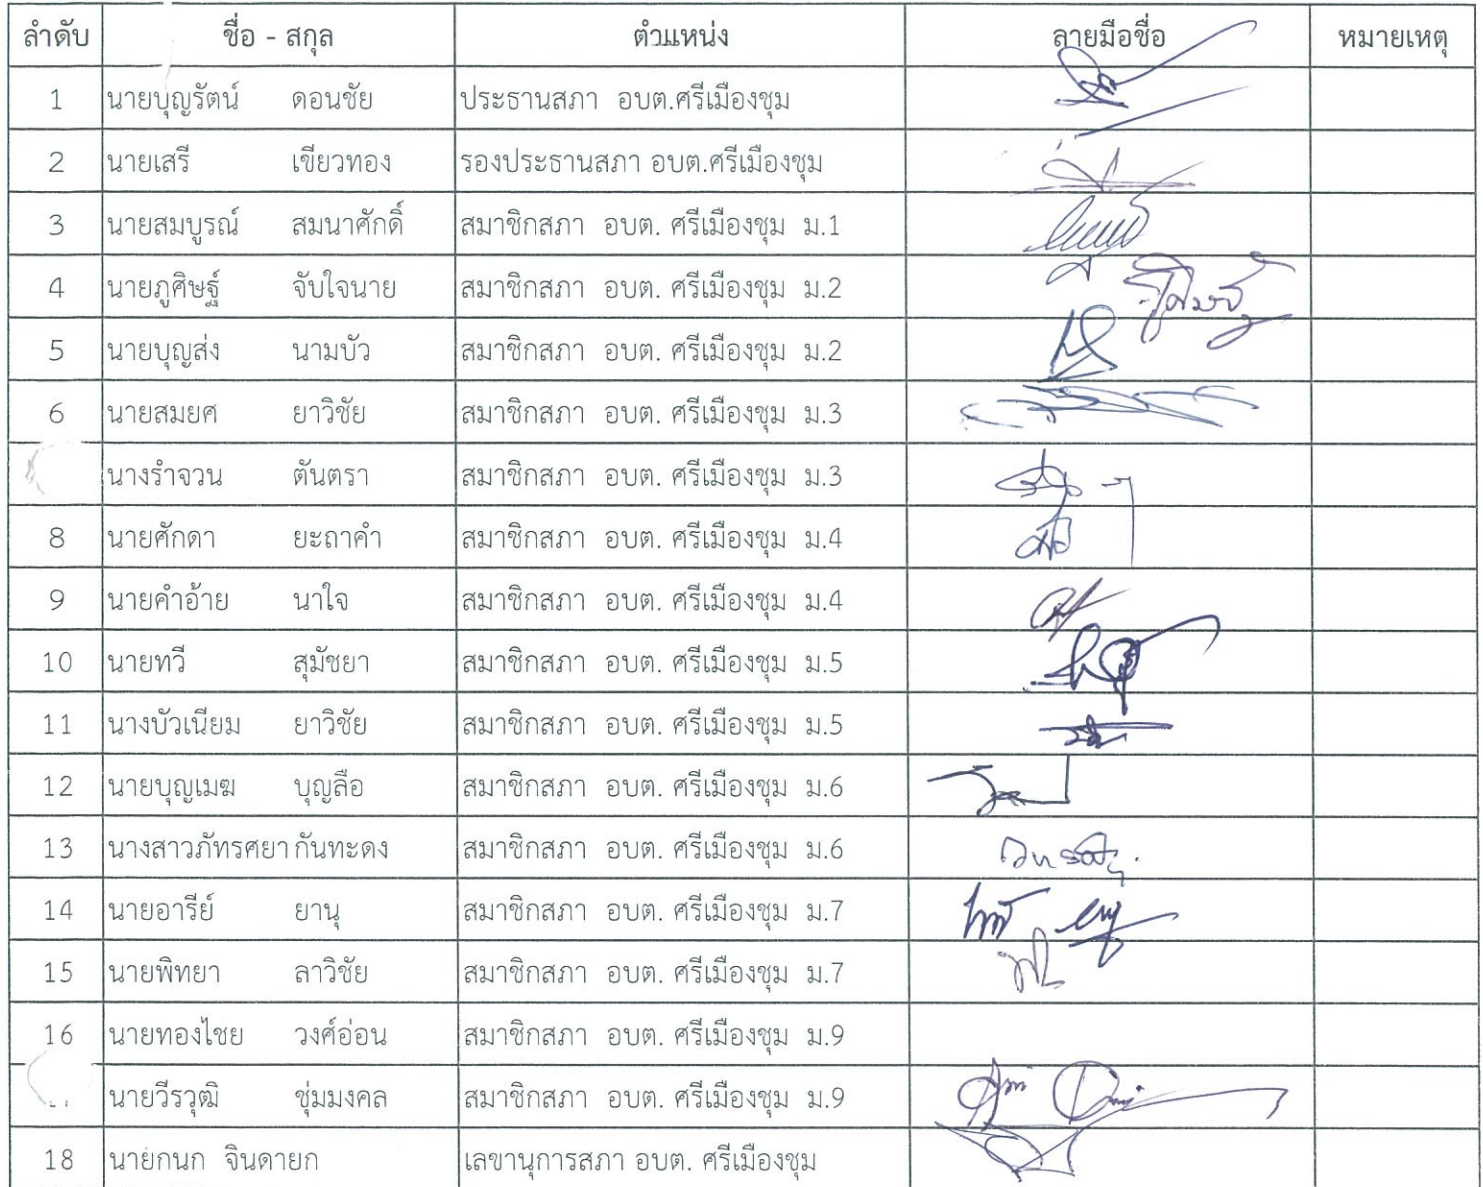 ลำดับ ชื่อ - สกุล ตำแหน่ง ลายมือชื่อ หมายเหตุ
1 นายบุญรัตน์ ดอนชัย ประธานสภา อบต.ศรีเมืองชุม
2 นายเสรี เขียวทอง รองประธานสภา อบต.ศรีเมืองชุม
3 นายสมบูรณ์ สมนาศักดิ์ สมาชิกสภา อบต. ศรีเมืองชุม ม.1
4 นายภูศิษฐ์ จับใจนาย สมาชิกสภา อบต. ศรีเมืองชุม ม.2
5 นายบุญส่ง นามบัว สมาชิกสภา อบต. ศรีเมืองชุม ม.2
6 นายสมยศ ยาวิชัย สมาชิกสภา อบต. ศรีเมืองชุม ม.3
นางรำจวน ตันตรา สมาชิกสภา อบต. ศรีเมืองชุม ม.3
8 นายศักดา ยะถาคำ สมาชิกสภา อบต. ศรีเมืองชุม ม.4
9 นายคำอ้าย นาใจ สมาชิกสภา อบต. ศรีเมืองชุม ม.4
10 นายทวี สุมัชยา สมาชิกสภา อบต. ศรีเมืองชุม ม.5
11 นางบัวเนียม ยาวิชัย สมาชิกสภา อบต. ศรีเมืองชุม ม.5
12 นายบุญเมฆ บุญลือ สมาชิกสภา อบต. ศรีเมืองชุม ม.6
13 นางสาวภัทรศยา กันทะดง สมาชิกสภา อบต. ศรีเมืองชุม ม.6
14 นายอารีย์ ยานุ สมาชิกสภา อบต. ศรีเมืองชุม ม.7
15 นายพิทยา ลาวิชัย สมาชิกสภา อบต. ศรีเมืองชุม ม.7
16 นายทองไชย วงศ์อ่อน สมาชิกสภา อบต. ศรีเมืองชุม ม.9
นายวีรวุฒิ ชุ่มมงคล สมาชิกสภา อบต. ศรีเมืองชุม ม.9
18 นายกนก จินดายก เลขานุการสภา อบต. ศรีเมืองชุม